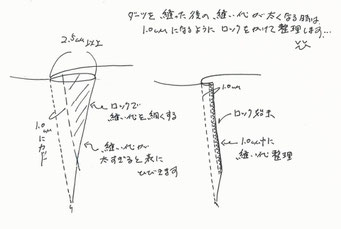 ダーツを縫った後の縫い代が太くなる時は
1.0cmになるように ロックをかけて整理します…
2.5cm以上
1.0cmにカット
ロックで
縫い代を細くする
縫い代が
太すぎると表に
ひびきます
1.0cm
ロック始末
1.0cm巾に
縫い代整理